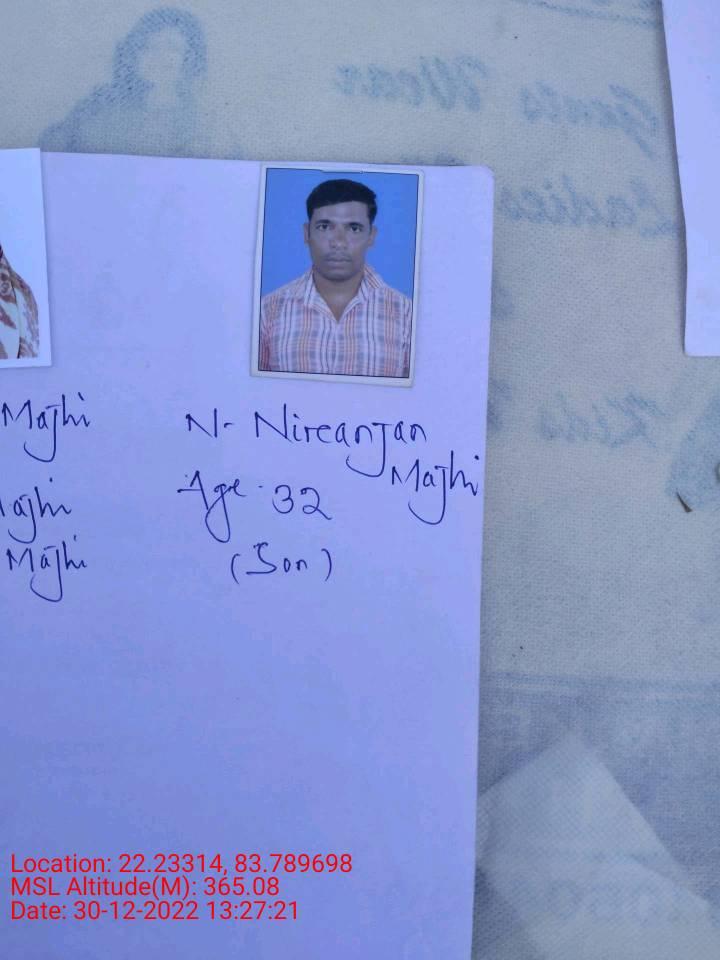 Gents Wear
Ladies
Kids
Majhi
N- Nireanjan
Majhi
Age- 32
Majhi
(Son)
Location: 22.23314, 83.789698
MSL Altitude(M): 365.08
Date: 30-12-2022 13:27:21